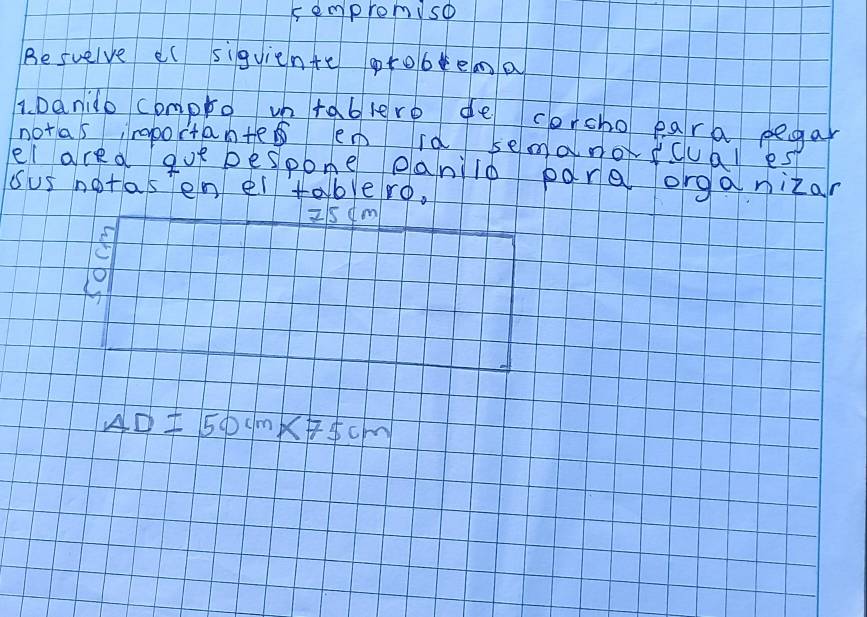 compromiso
Resuelve el siguiente problema
1. Danilo compro un tablero de corcho para pegar
notas importantes en la semana ¿cual es
el area que despone Danilo para organizar
sus notas en el tablero.
75cm
50cm
AD = 50cm x 75cm